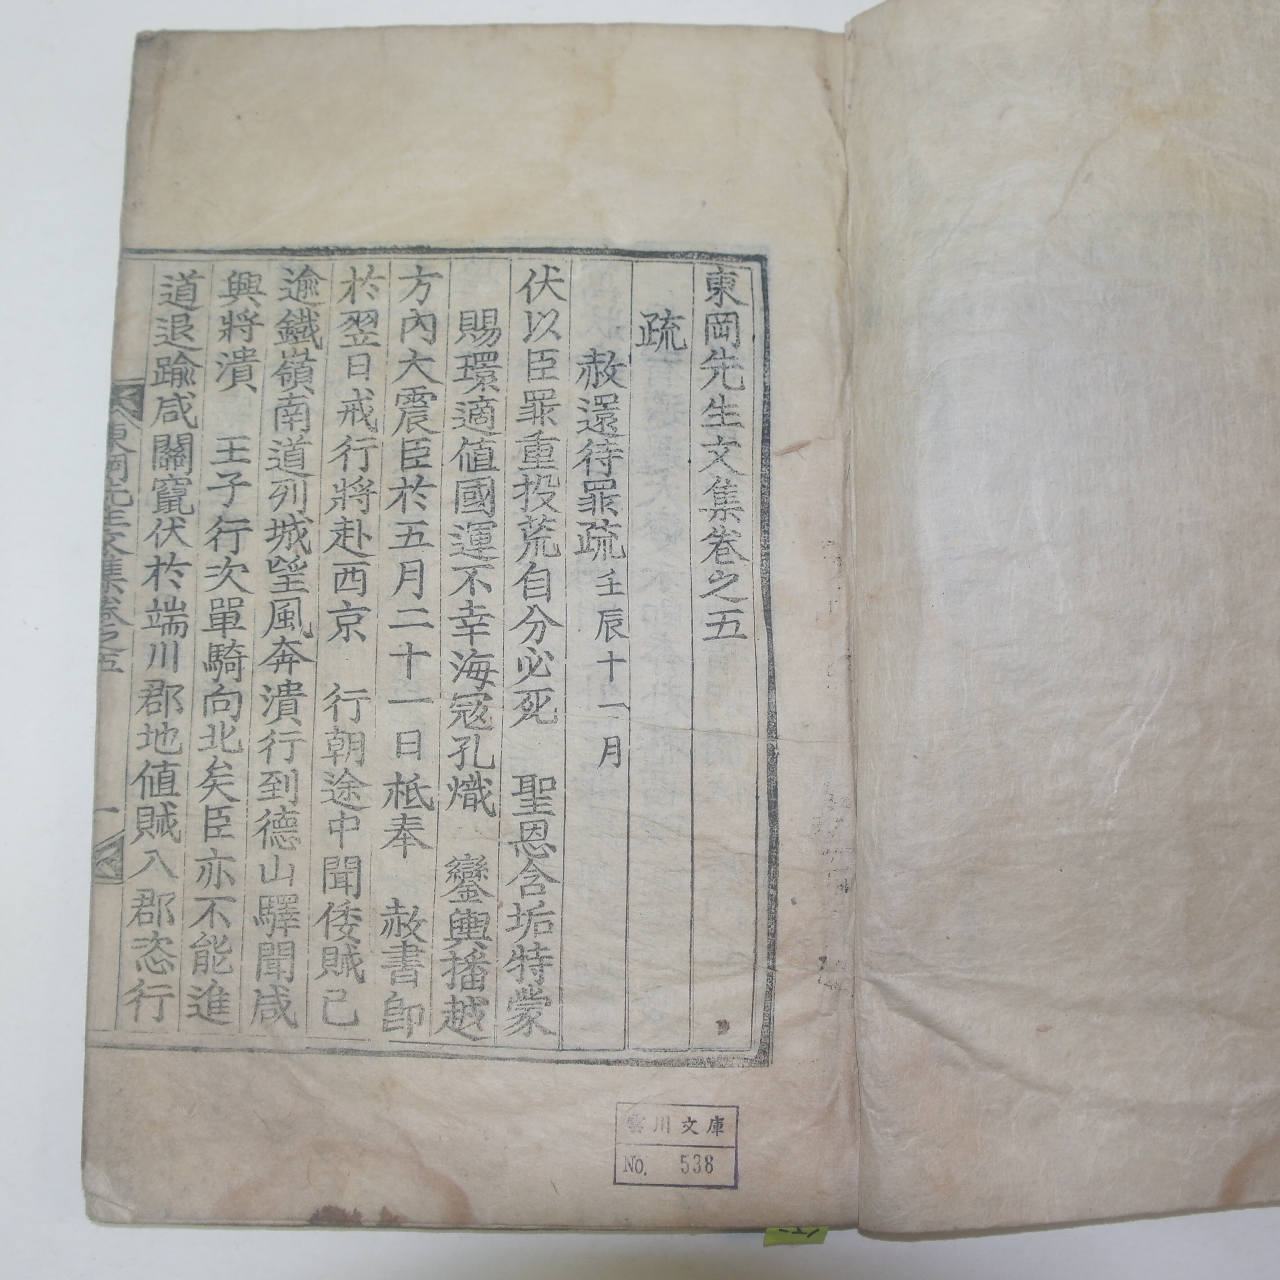 東岡先生文集卷之五
疏
赦還待罪疏 壬辰十一月
伏以臣罪重投荒自分必死 聖恩含垢特蒙
賜環適値國運不幸海寇孔熾 鑾輿播越
方內大震臣於五月二十一日袛奉 赦書卽
於翌日戒行將赴西京 行朝途中聞倭賊已
逾鐵嶺南道列城望風奔潰行到德山驛聞咸
興將潰 王子行次單騎向北矣臣亦不能進
道退踰咸關竄伏於端川郡地値賊入郡恣行
東岡先生文集卷之五
一
雲川文庫
No. 538